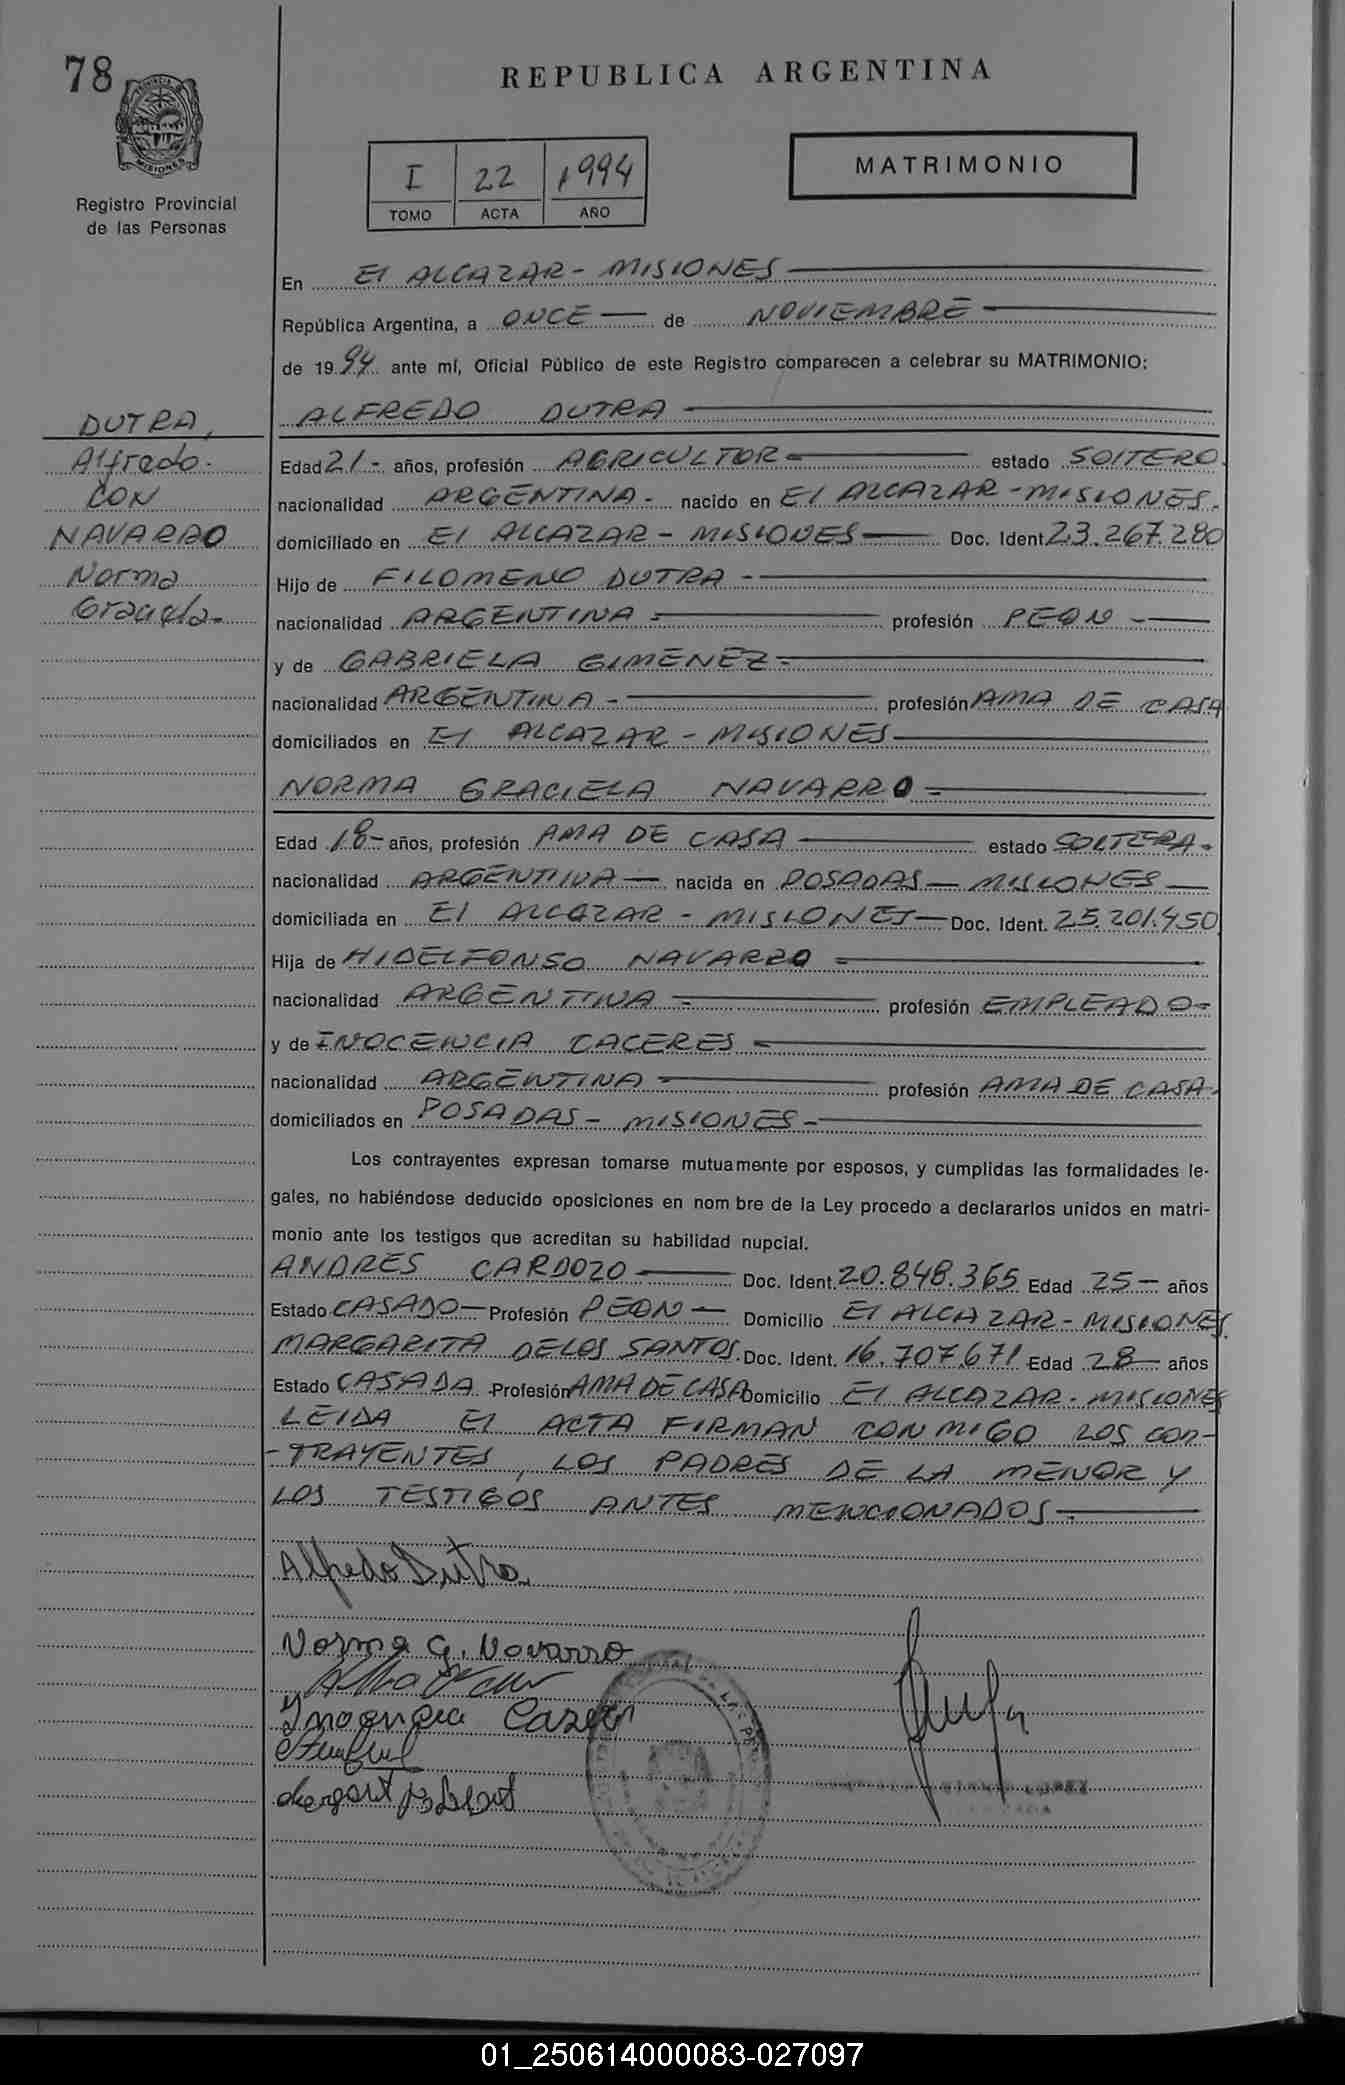 78
REPUBLICA ARGENTINA
MISIONES
Registro Provincial
de las Personas
I 22 1994
TOMO ACTA AÑO
MATRIMONIO
En El ALCAZAR - MISIONES
República Argentina, a ONCE de NOVIEMBRE
de 1994 ante mí, Oficial Público de este Registro comparecen a celebrar su MATRIMONIO:
DUTRA,
Alfredo.
CON
NAVARRO
Norma
Graciela-
ALFREDO DUTRA
Edad 21 - años, profesión AGRICULTOR estado SOLTERO.
nacionalidad ARGENTINA - nacido en El ALCAZAR - MISIONES.
domiciliado en El ALCAZAR - MISIONES Doc. Ident. 23.267.280
Hijo de FILOMENO DUTRA -
nacionalidad ARGENTINA - profesión PEON -
y de GABRIELA GIMENEZ -
nacionalidad ARGENTINA - profesión AMA DE CASA
domiciliados en El ALCAZAR - MISIONES
NORMA GRACIELA NAVARRO -
Edad 18 - años, profesión AMA DE CASA estado SOLTERA -
nacionalidad ARGENTINA - nacida en POSADAS - MISIONES -
domiciliada en El ALCAZAR - MISIONES - Doc. Ident. 25.201.450
Hija de HIDELFONSO NAVARRO -
nacionalidad ARGENTINA - profesión EMPLEADO -
y de INOCENCIA CACERES -
nacionalidad ARGENTINA - profesión AMA DE CASA.
domiciliados en POSADAS - MISIONES -
Los contrayentes expresan tomarse mutuamente por esposos, y cumplidas las formalidades le-
gales, no habiéndose deducido oposiciones en nom bre de la Ley procedo a declararlos unidos en matri-
monio ante los testigos que acreditan su habilidad nupcial.
ANDRES CARDOZO Doc. Ident. 20.848.365 Edad 25 - años
Estado CASADO - Profesión PEON - Domicilio El ALCAZAR - MISIONES.
MARGARITA DELOS SANTOS. Doc. Ident. 16.707.671 Edad 28 - años
Estado CASADA Profesión AMA DE CASA Domicilio El ALCAZAR - MISIONES
LEIDA El ACTA FIRMAN CONMIGO LOS CON-
-TRAYENTES, LOS PADRES DE LA MENOR Y
LOS TESTIGOS ANTES MENCIONADOS -
Alfredo Dutra
Norma G. Navarro
LOPEZ
01_250614000083-027097